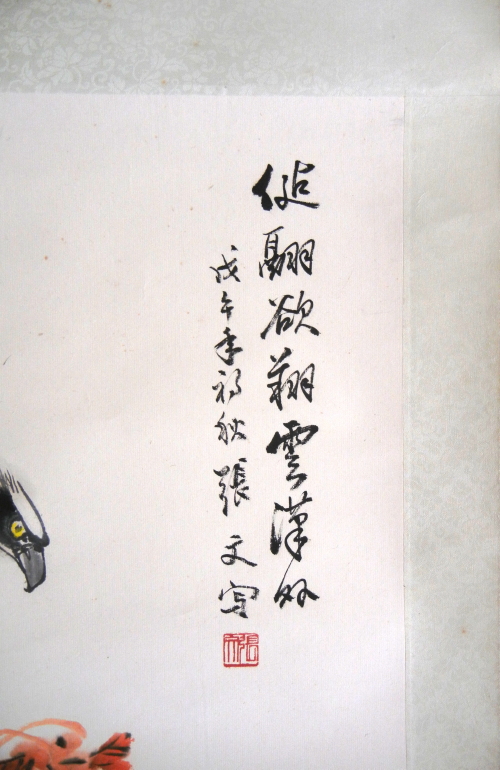 健翮欲翔雲漢外
戊午年初秋張文寫